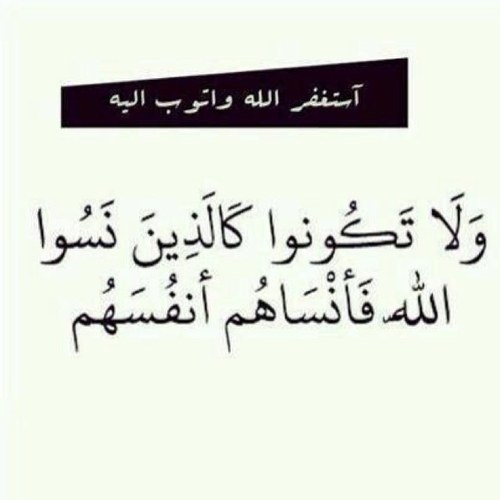 آستغفر الله واتوب اليه
وَلَا تَكُونوا كَالَذِينَ نَسُوا
الله فَأنْسَاهُم أنفُسَهُم